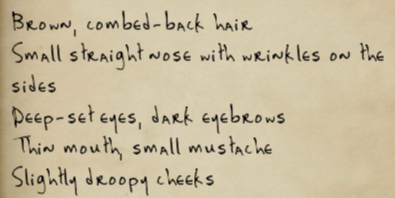 Brown, combed-back hair
Small straight nose with wrinkles on the
sides
Deep-set eyes, dark eyebrows
Thin mouth, small mustache
Slightly droopy cheeks